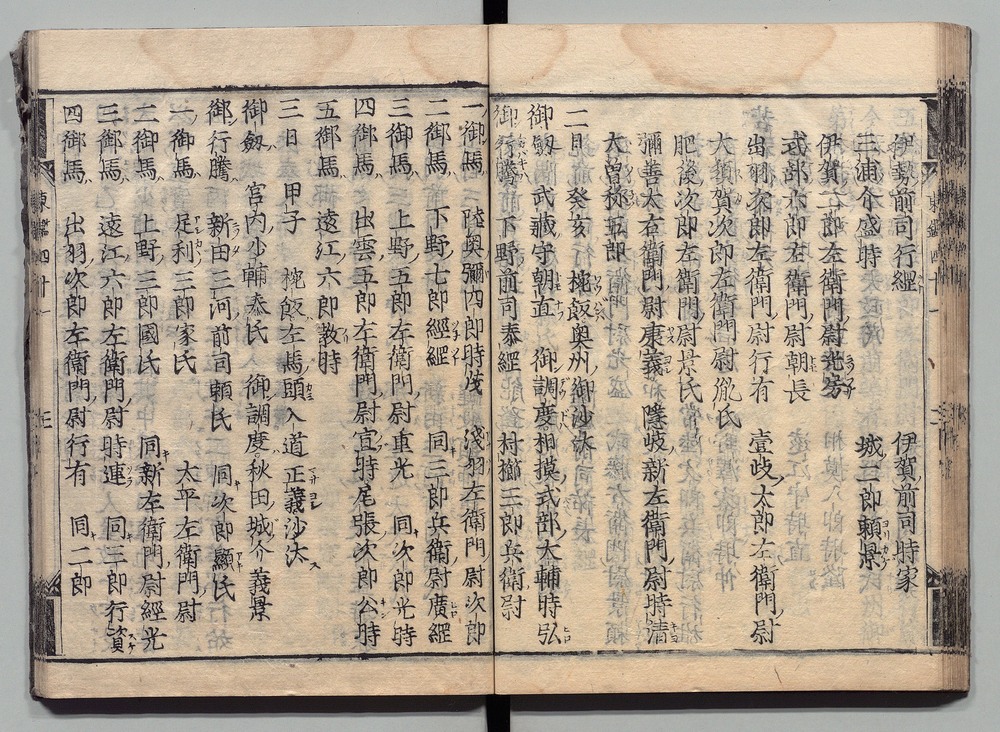 伊勢前司行經　伊賀前司時家
三浦介盛時　城二郎頼景
伊賀二郎左衛門尉光房
式部六郎右衛門尉朝長
出羽次郎左衛門尉行有　壹岐太郎左衛門尉
大須賀次郎左衛門尉胤氏
肥後次郎左衛門尉景氏
彌善太右衛門尉康義　隠岐新左衛門尉時清
大曽祢五郎
二日　癸亥　椀飯奥州御沙汰
御劔　武藏守朝直　御調度相摸式部大輔時弘
御行騰　下野前司泰經　村櫛三郎兵衛尉
一御馬　陸奥彌四郎時茂　淺羽左衛門尉次郎
二御馬　下野七郎經綱　同三郎兵衛尉廣綱
三御馬　上野五郎左衛門尉重光　同次郎光時
四御馬　出雲五郎左衛門尉宣時尾張次郎公時
五御馬　遠江六郎教時
三日　甲子　椀飯左馬頭入道正義沙汰
御劔　宮内少輔泰氏　御調度秋田城介義景
御行騰　新田三河前司頼氏　同次郎顯氏
一御馬　足利三郎家氏　太平左衛門尉
二御馬　上野三郎國氏　同新左衛門尉經光
三御馬　遠江六郎左衛門尉時連　同三郎行資
四御馬　出羽次郎左衛門尉行有　同二郎
東鑑四十一